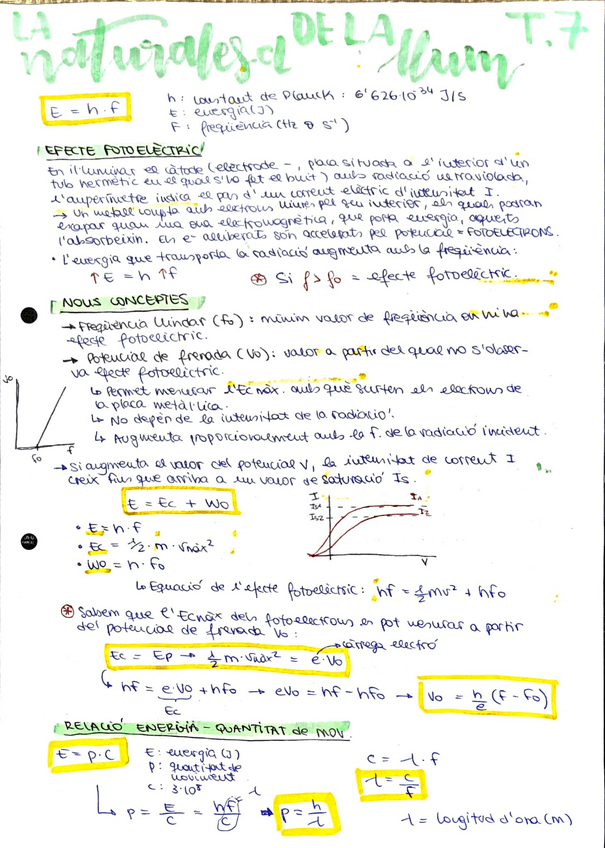 LA naturalesa DE LA llum T.7
E = h · f
h: constant de Planck: 6'626·10⁻³⁴ J/S
E: energia (J)
F: freqüència (Hz o s⁻¹)
EFECTE FOTOELÈCTRIC
En il·luminar el càtode (elèctrode -, placa situada a l'interior d'un
tub hermètic en el qual s'ha fet el buit) amb radiació ultraviolada,
l'amperímetre indica el pas d'un corrent elèctric d'intensitat I.
→ Un metall compta amb electrons lliures pel seu interior, els quals podran
escapar quan una ona electromagnètica, que porta energia, aquests
l'absorbeixin. Els e- alliberats són accelerats pel potencial = FOTOELECTRONS.
• L'energia que transporta la radiació augmenta amb la freqüència:
↑E = h ↑f
⊛ Si f > fo = efecte fotoelèctric.
NOUS CONCEPTES
→ Freqüència llindar (fo): mínim valor de freqüència on hi ha
efecte fotoelèctric.
→ Potencial de frenada (Vo): valor a partir del qual no s'obser-
va efecte fotoelèctric.
↳ Permet mesurar l'Ec màx. amb què surten els electrons de
la placa metàl·lica.
↳ No depèn de la intensitat de la radiació.
↳ Augmenta proporcionalment amb la f. de la radiació incident.
Vo
fo
f
→ Si augmenta el valor del potencial V, la intensitat de corrent I
creix fins que arriba a un valor de saturació Is.
E = Ec + Wo
• E = h · f
• Ec = ½ · m · vmàx²
• Wo = h · fo
I
Is1
Is2
I1
I2
V
↳ Equació de l'efecte fotoelèctric: hf = ½mv² + hfo
⊛ Sabem que l'Ecmàx dels fotoelectrons es pot mesurar a partir
del potencial de frenada Vo:
càrrega electró
Ec = Ep → ½ m · vmàx² = e · Vo
↳ hf = e · Vo + hfo → eVo = hf - hfo → Vo = h/e (f - fo)
Ec
RELACIÓ ENERGIA - QUANTITAT de MOV.
E = p · c
E: energia (J)
p: quantitat de
moviment
c: 3·10⁸
c = λ · f
λ = c/f
λ
↳ p = E/c = hf/c ⇒ p = h/λ
λ = longitud d'ona (m)